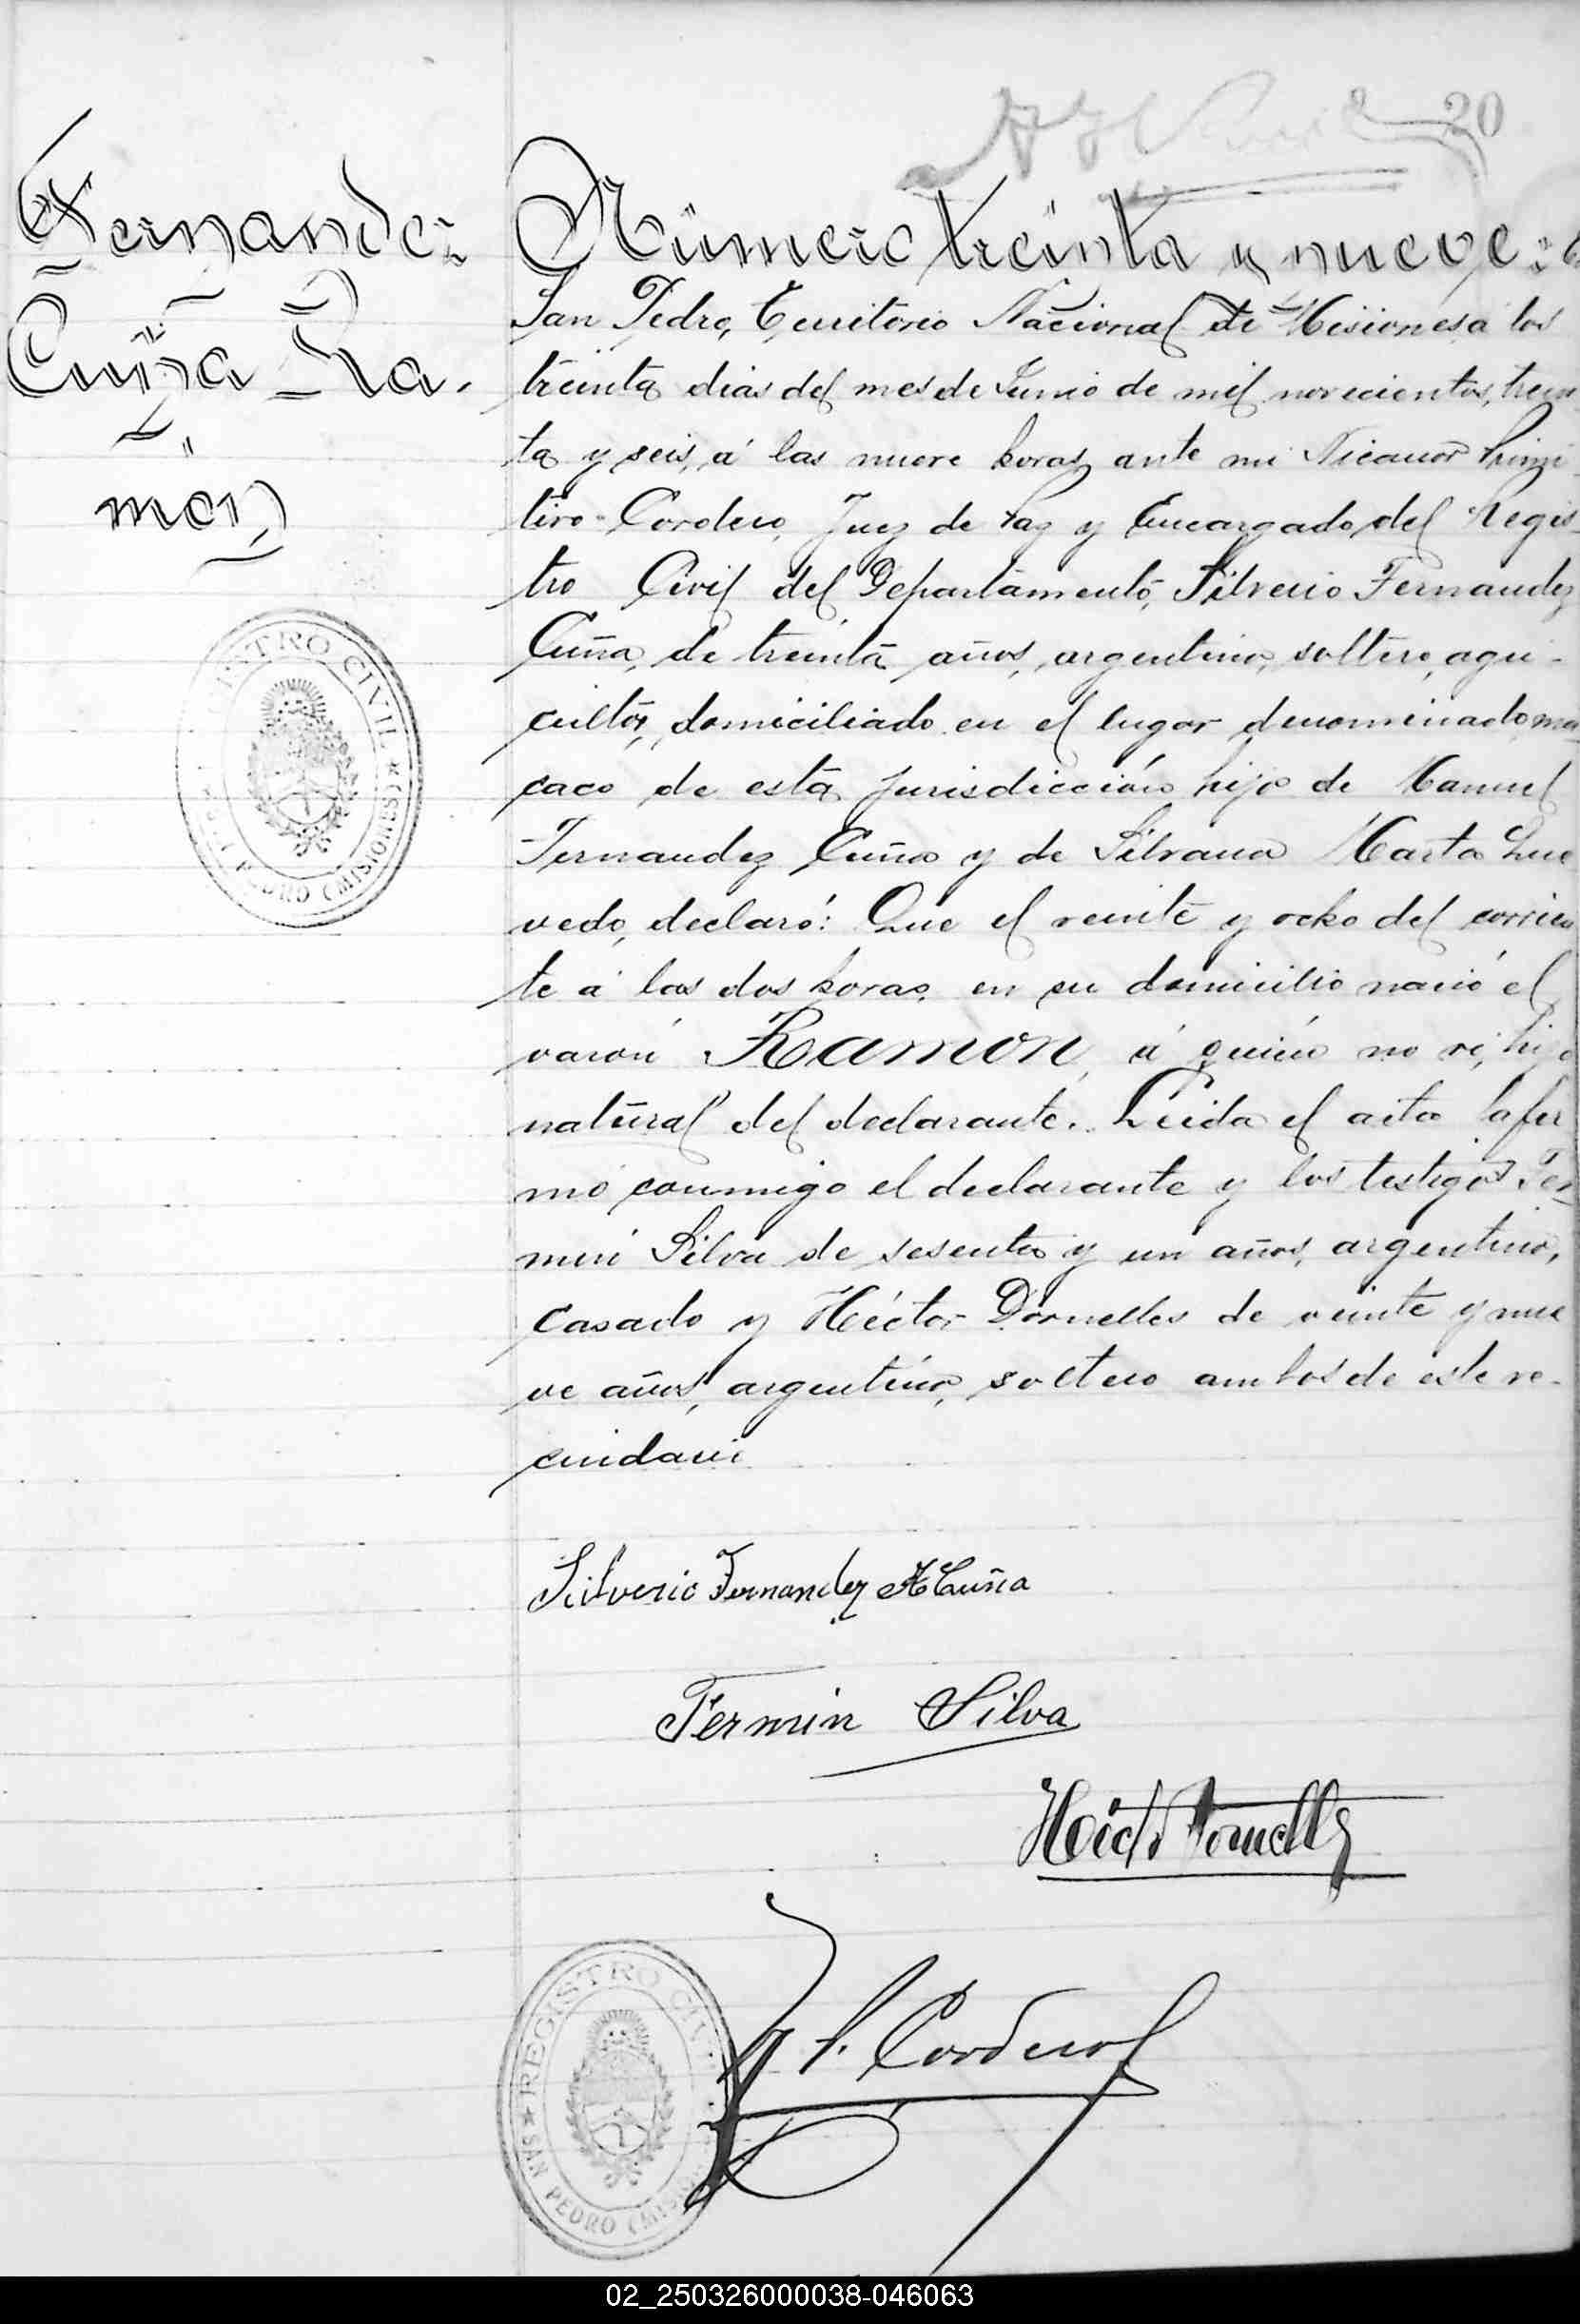 20
Fernandez
Cuña Ra-
mon
Número treinta y nueve: En
San Pedro, Territorio Nacional de Misiones, a los
treinta dias del mes de Junio de mil novecientos, trein-
ta y seis, á las nueve horas, ante mi Nicanor Primi-
tivo Cordero, Juez de Paz y Encargado del Regis-
tro Civil del Departamento, Silverio Fernandez
Cuña, de treinta años, argentino, soltero, agri-
cultor, domiciliado en el lugar denominado, ma-
caco de esta jurisdicción hijo de Manuel
Fernandez Cuña y de Silvana Marta Que
vedo, declaró: Que el veinte y ocho del corrien
te á las dos horas, en su domicilio nació el
varón RAMON, á quién no ví, hijo
natural del declarante. Leida el acta la fir
mó conmigo el declarante y los testigos Fer-
min Silva de sesenta y un años, argentino,
casado y Héctor Dornelles de veinte y nue
ve años, argentino, soltero ambos de este ve-
cindario
Silverio Fernandez ACuña
Fermin Silva
Héctor Dornelles
N. P. Cordero
REGISTRO CIVIL
SAN PEDRO (MISIONES)
REGISTRO CIVIL
SAN PEDRO (MISIONES)
02_250326000038-046063